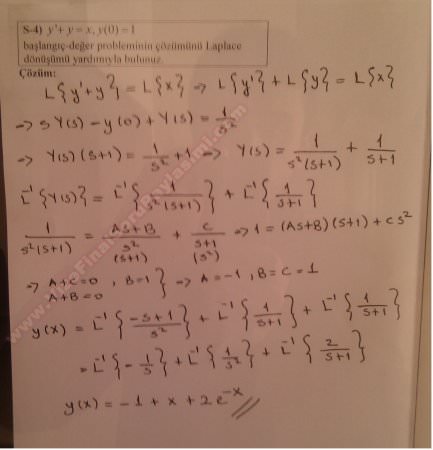 S-4) y'+ y = x, y(0) = 1
başlangıç-değer probleminin çözümünü Laplace
dönüşümü yardımıyla bulunuz.
Çözüm:
L{y'+y} = L{x} => L{y'} + L{y} = L{x}
=> sY(s) - y(0) + Y(s) = 1/s²
=> Y(s)(s+1) = 1/s² + 1 => Y(s) = 1/(s²(s+1)) + 1/(s+1)
L⁻¹{Y(s)} = L⁻¹{1/(s²(s+1))} + L⁻¹{1/(s+1)}
1/(s²(s+1)) = (As+B)/s² (s+1) + C/(s+1) (s²) => 1 = (As+B)(s+1) + Cs²
=> A+C=0, B=1 } => A=-1, B=C=1
A+B=0
y(x) = L⁻¹{(-s+1)/s²} + L⁻¹{1/(s+1)} + L⁻¹{1/(s+1)}
= L⁻¹{-1/s} + L⁻¹{1/s²} + L⁻¹{2/(s+1)}
y(x) = -1 + x + 2e⁻ˣ